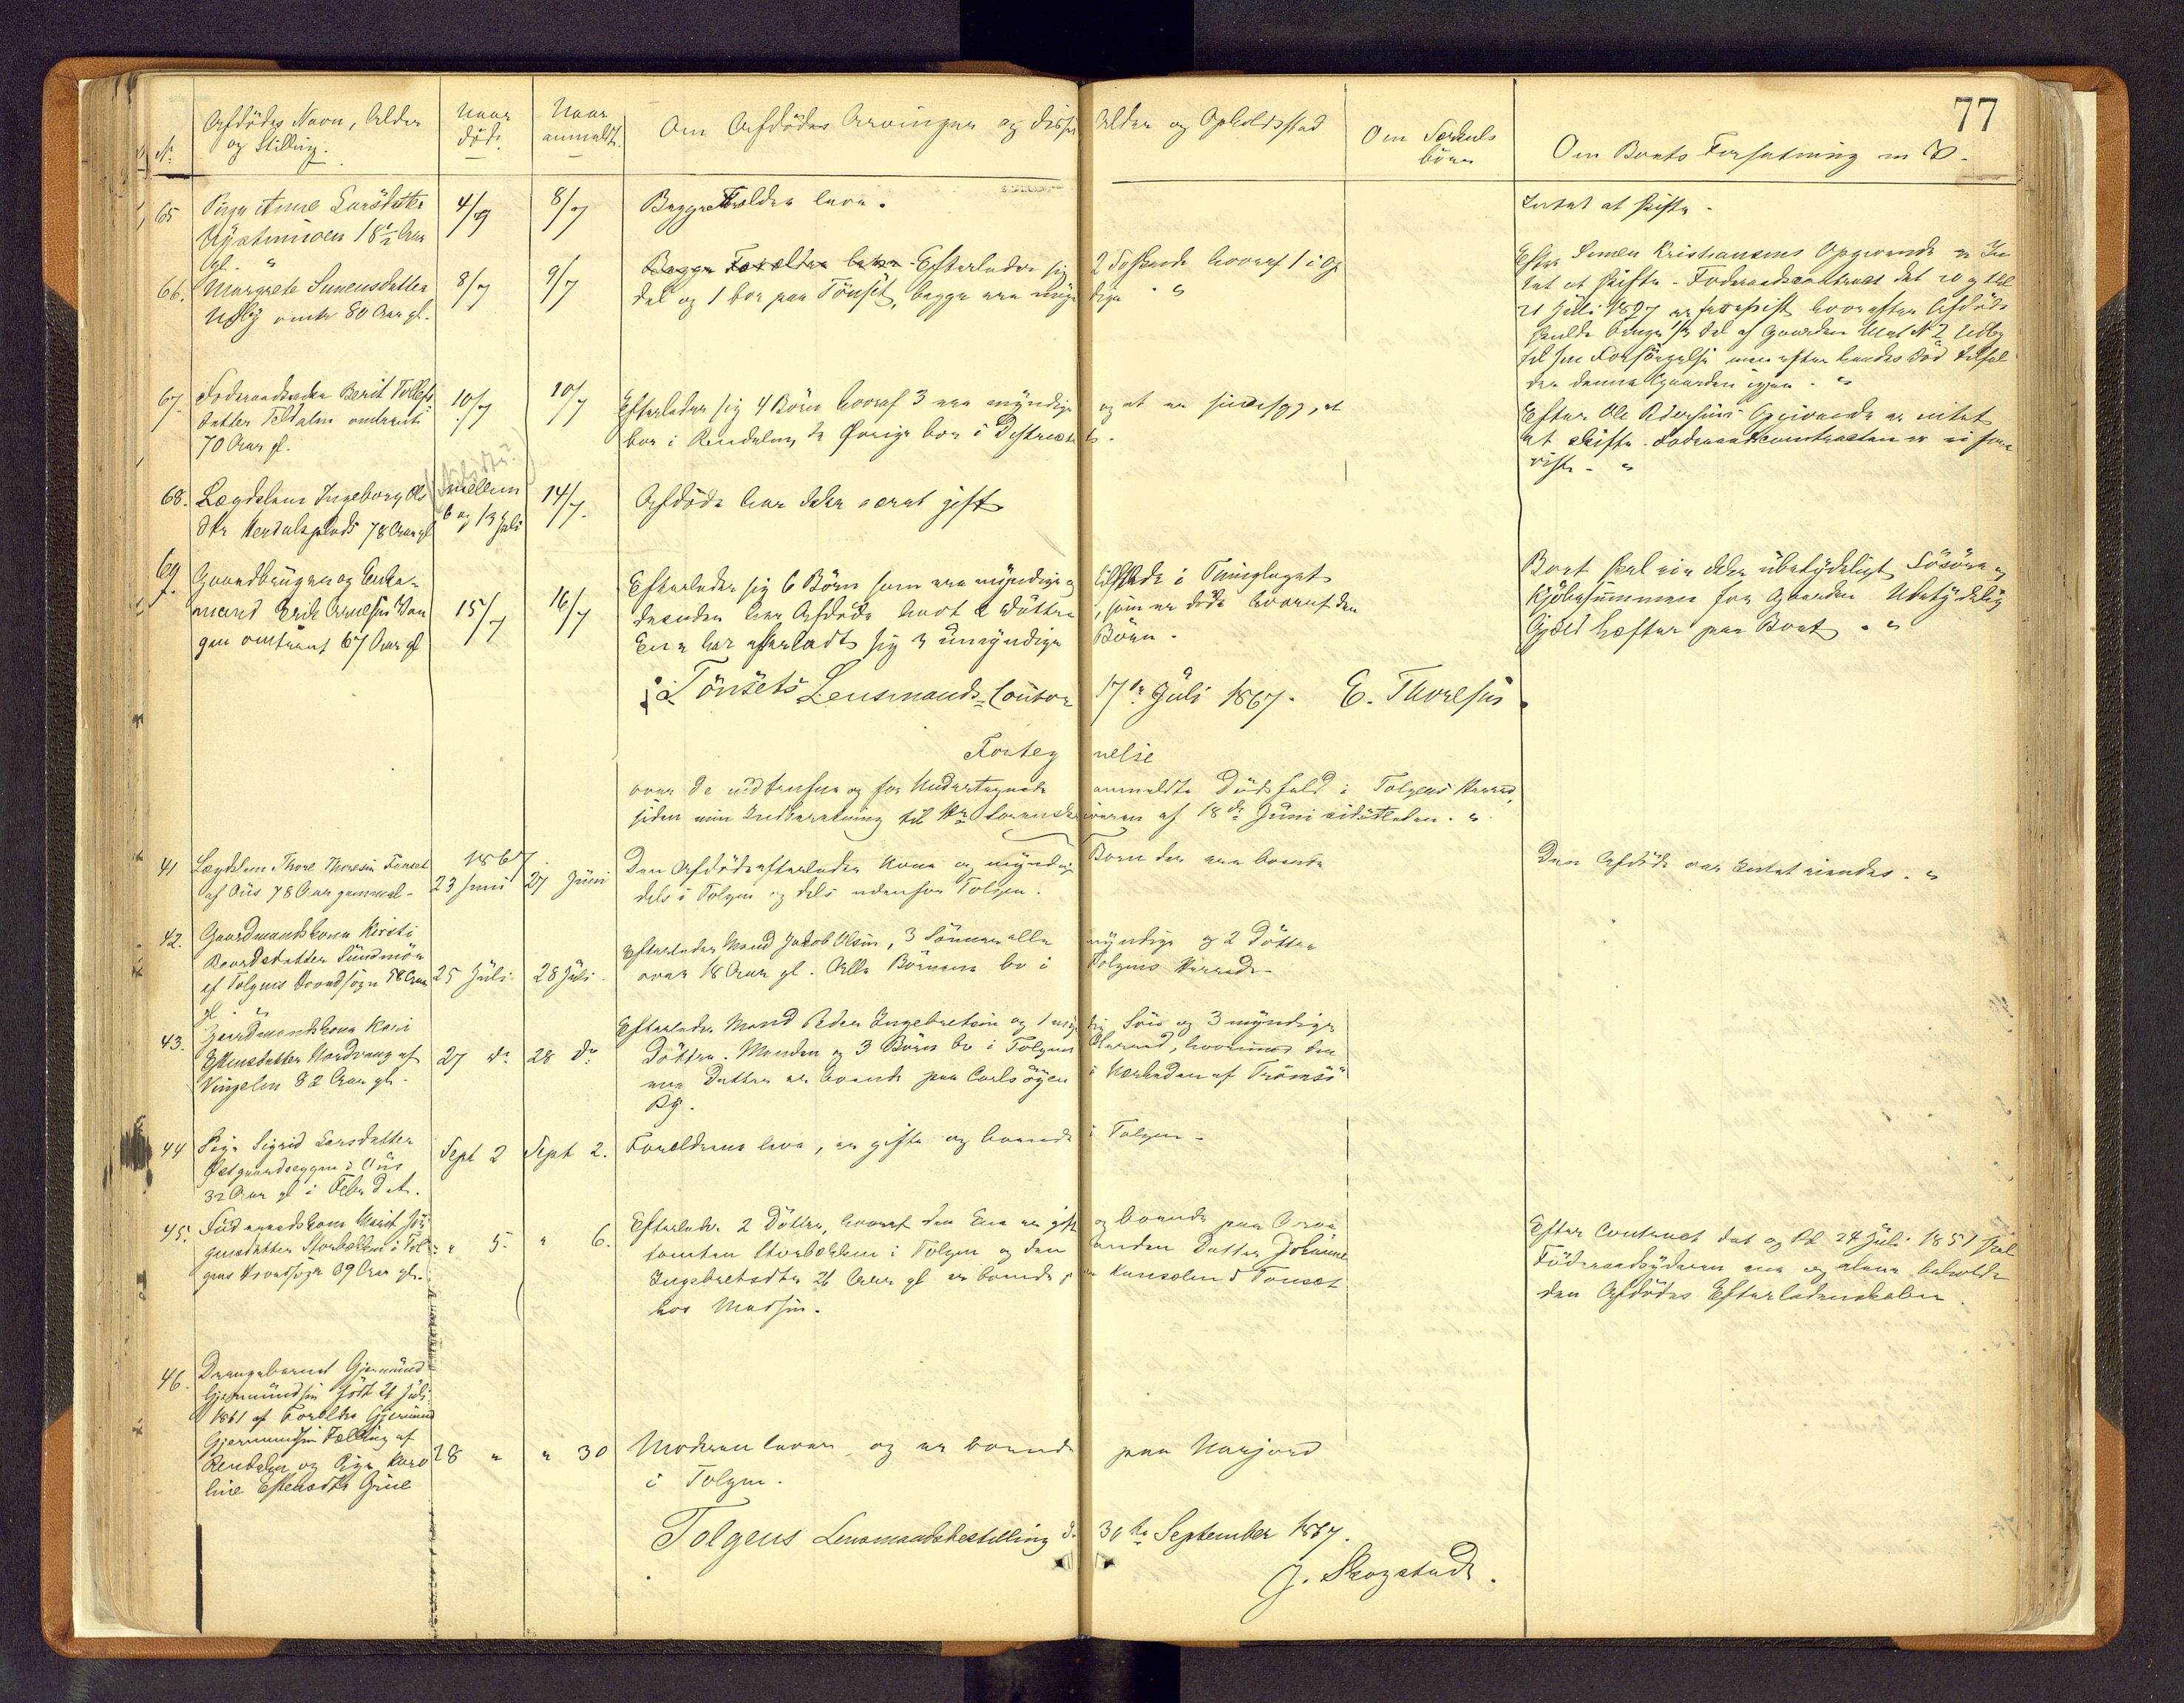 77
Nr.
Afdødes Navn, Alder
og Stilling.
Naar
død.
Naar
anmeldt.
Om Afdødes Arvinger og disses Alder og Opholdsstad
Om Særkuls
børn
Om Boets Forfatning m V.
65 Pige Anne Larsdatter
18½ Aar
gl. "
4/7
8/7
Begge Forældre leve.
Intet at skifte.
66. Margrete Simensdatter
Udby omtr 80 Aar gl.
8/7
9/7
Begge Forældre leve Efterlader sig 2 Sødskende hvoraf 1 i Op
dal og 1 bor paa Tönset, begge ere myndige "
Efter Simen Kristiansens Opgivende er In
tet at skifte - Foderaadscontract dat 20 og tbl
21 Juli 1827 er hvorefter Afdøde
skulde bruge Del af Gaarden Mat No 2 Udby
til sin Forsørgelse men efter hendes Død tilfal
der denne Gaarden igjen. "
67. Foderaadsenke Berit Tollefs
datter Teldalen omtrent
70 Aar gl.
10/7
10/7
Efterlader sig 4 Børn hvoraf 3 ere myndige og et er sindssyg, et
bor i Rendalen, de Øvrige bor i Destrictet.
Efter Ole Pedersens Opgivende er intet
at skifte. Foderaadscontracten er ei fore
vist. "
68. Lægdslem Ingeborg Ols
dtr Herdalsplads 78 Aar gl
mellem
6 og 13 Juli
14/7.
Afdøde har ikke været gift
69. Gaardbruger og Enke-
mand Erik Arnesen Van
gen omtrent 67 Aar gl
15/7
16/7
Efterlader sig 6 Børn som ere myndige og tilstede i Thinglaget
desuden har Afdøde havt 2 Døttre, som er døde hvoraf den
Ene har efterladt sig 3 umyndige Børn.
Boet skal eie ikke ubetydeligt Løsøre og
Kjøbesummen for Gaarden. Ubetydelig
Gjæld hæfter paa Boet. "
Tönsets Lensmands-Contor 17de Juli 1867. E. Thoresen
Fortegnelse
over de indtrufne og for Undertegnede anmeldte Dødsfald i Tolgens Herred,
siden min Indberetning til Hr Sorenskriveren af 18de Juni sidstleden. "
41 Lægdslem Thore Thoresen Fonset
af Øus 78 Aar gammel.
1867
23 Juni
27 Juni
Den Afdøde efterlader Kone og myndige Børn der ere boende
dels i Tolgen og dels udenfor Tolgen.
Den Afdøde var Intet eiendes. "
42. Gaardmandskone Kirsti
Baardsdatter Sundmön
af Tolgens Hovedsogn 78 Aar
gl. "
25 Juli
28 Juli.
Efterlader Mand Jakob Olsen, 3 Sönner alle myndige og 2 Döttre
over 18 Aar gl. Alle Börnene bo i Tolgens Herred.
43. Gaardmandskone Kari
Estensdatter Nordvang af
Vingelen 82 Aar gl.
27 do
28 do
Efterlader Mand Peder Ingebretsen og 1 myndig Sön og 3 myndige
Döttre. Manden og 3 Börn bo i Tolgens Herred, hvorimod den
ene Datter er boende paa Carlsöyen i Nærheden af Tromsö
By.
44 Pige Sigrid Larsdatter
Østgaardseggen i Øus
32 Aar gl i Febr d. A.
Sept 2
Sept 2.
Forældrene leve, er gifte og boende i Tolgen.
45. Födraadskone Marit Jör
gensdatter Storbækken i Tol
gens Hovedsogn 69 Aar gl.
" 5.
" 6.
Efterlader 2 Döttre, hvoraf den Ene er gift og boende paa
tomten Storbækken i Tolgen og den anden Datter Johanne
Ingebretsdtr 26 Aar gl er boende i Tönset
hos Madsen.
Efter Contract dat og Pd 24 Juli 1851 skal
Födraadsyderen ene og alene beholde
den Afdödes Efterladenskaber.
46. Drengebarnet Gjermund
Gjermundsen født 21 Juli
1861 af Foreldre Gjermund
Gjermundsen Fælling af
Rendalen og Pige Karo
line Estensdtr Grue
28 "
" 30
Moderen lever og er boende paa Narjord
i Tolgen.
Tolgens Lensmandsbestilling d. 30te September 1867.
J. Skogstad.